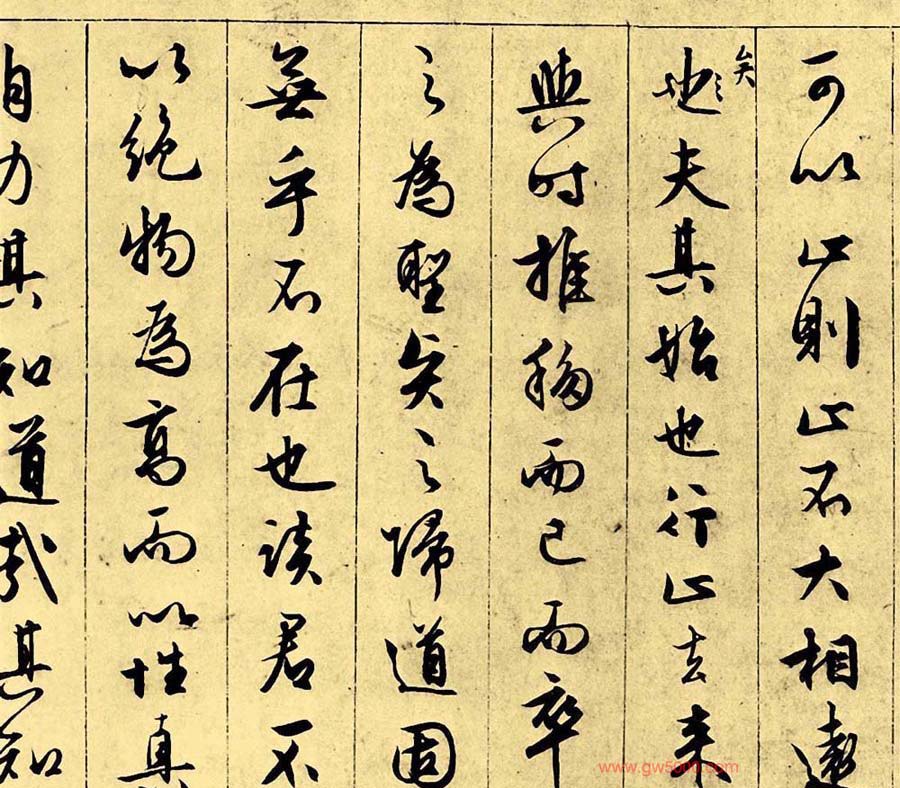 可以止則止不大相遠
矣
也夫其始也行止去来
與时推移而已而卒
之為聖矣之歸道固
無乎不在也談君不
以絶物為高而以性真
自力其知道哉其知